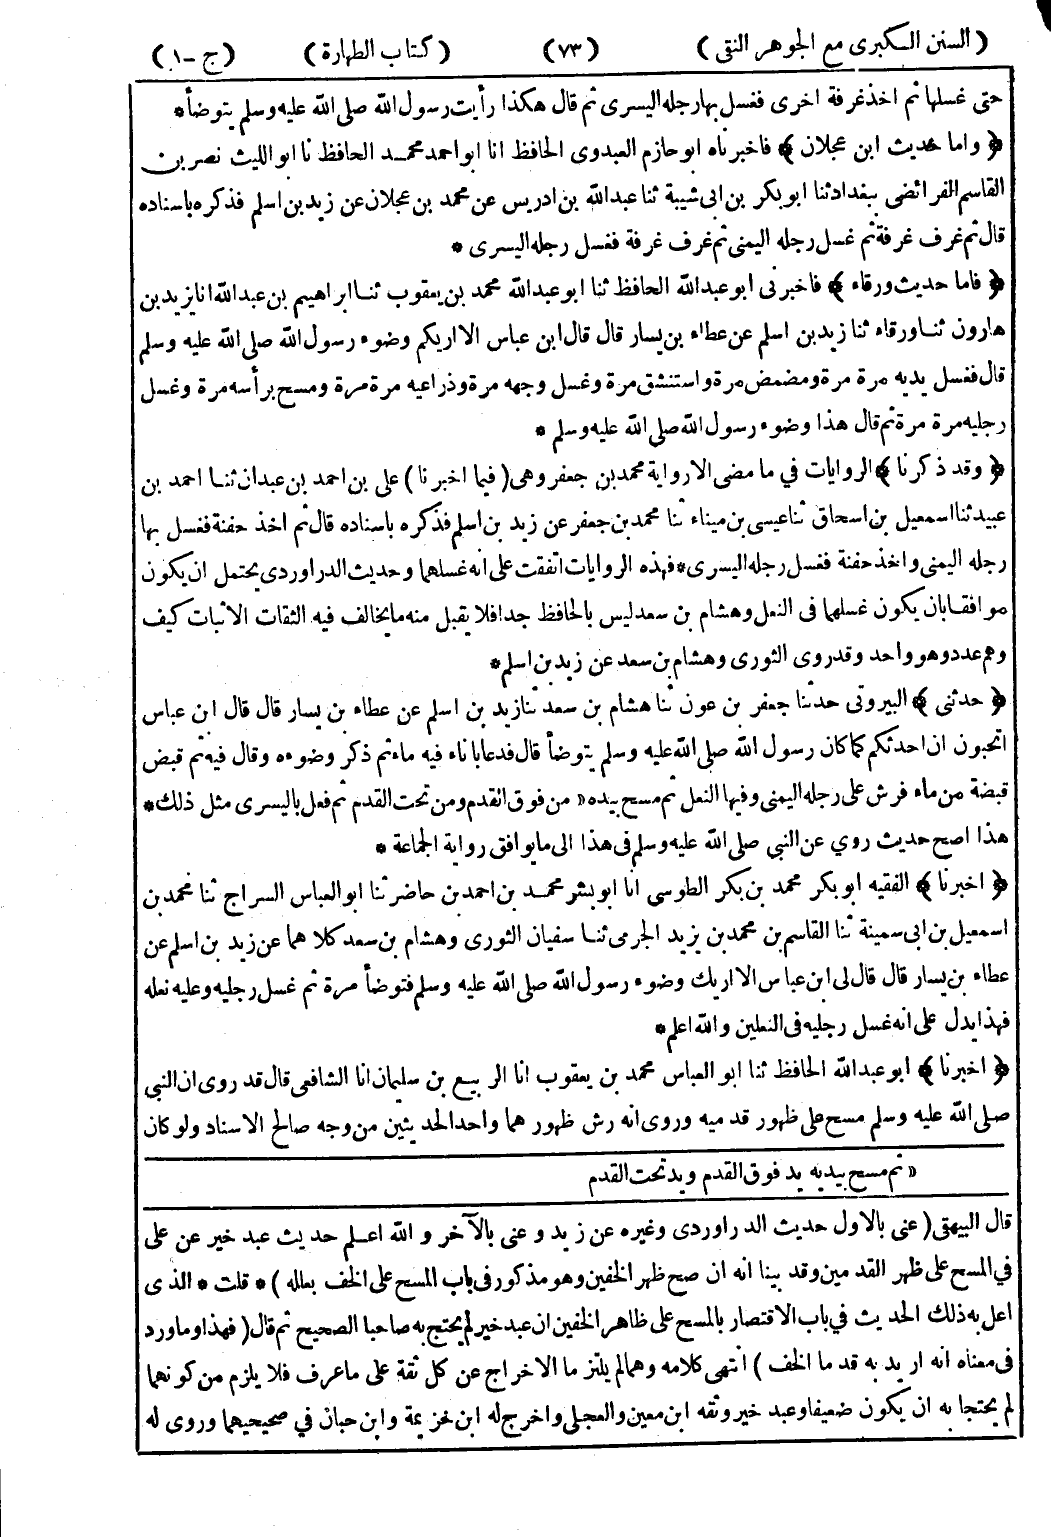 ( السنن الكبرى مع الجوهر النقى ) (٧٣) ( كتاب الطهارة ) ( ج -١ )
حتى غسلها ثم اخذ غرفة اخرى فغسل بها رجله اليسرى ثم قال هكذا رأيت رسول الله صلى الله عليه وسلم يتوضأ *
﴿ واما حديث ابن عجلان ﴾ فاخبرناه ابو حازم العبدوى الحافظ انا ابو احمد محمد الحافظ نا ابو الليث نصر بن
القاسم الفرائضى ببغداد ثنا ابو بكر بن ابى شيبة ثنا عبدالله بن ادريس عن محمد بن عجلان عن زيد بن اسلم فذكره باسناده
قال ثم غرف غرفة ثم غسل رجله اليمنى ثم غرف غرفة فغسل رجله اليسرى *
﴿ فاما حديث ورقاء ﴾ فاخبرنى ابو عبدالله الحافظ ثنا ابو عبدالله محمد بن يعقوب ثنا ابراهيم بن عبدالله انا يزيد بن
هارون ثنا ورقاء ثنا زيد بن اسلم عن عطاء بن يسار قال قال ابن عباس الا اريكم وضوء رسول الله صلى الله عليه وسلم
قال فغسل يديه مرة مرة ومضمض مرة واستنشق مرة وغسل وجهه مرة وذراعيه مرة مرة ومسح برأسه مرة وغسل
رجليه مرة مرة ثم قال هذا وضوء رسول الله صلى الله عليه وسلم *
﴿ وقد ذكرنا ﴾ الروايات في ما مضى الا رواية محمد بن جعفر وهى ( فيما اخبرنا ) على بن احمد بن عبدان ثنا احمد بن
عبيد ثنا اسمعيل بن اسحاق ثنا عيسى بن ميناء ثنا محمد بن جعفر عن زيد بن اسلم فذكره باسناده قال ثم اخذ حفنة فغسل بها
رجله اليمنى واخذ حفنة فغسل رجله اليسرى * فهذه الروايات اتفقت على انه غسلهما وحديث الدراوردى يحتمل ان يكون
موافقا بان يكون غسلهما فى النعل وهشام بن سعد ليس بالحافظ جدا فلا يقبل منه ما يخالف فيه الثقات الاثبات كيف
وهم عدد وهو واحد وقد روى الثورى وهشام بن سعد عن زيد بن اسلم *
﴿ حدثنى ﴾ البيروتى حدثنا جعفر بن عون ثنا هشام بن سعد ثنا زيد بن اسلم عن عطاء بن يسار قال قال ابن عباس
اتحبون ان احدثكم كما كان رسول الله صلى الله عليه وسلم يتوضأ قال فدعا باناء فيه ماء ثم ذكر وضوءه وقال فيه ثم قبض
قبضة من ماء فرش على رجله اليمنى وفيها النعل ثم مسح بيده « من فوق القدم ومن تحت القدم ثم فعل باليسرى مثل ذلك *
هذا اصح حديث روي عن النبي صلى الله عليه وسلم فى هذا الى ما يوافق رواية الجماعة *
﴿ اخبرنا ﴾ الفقيه ابو بكر محمد بن بكر الطوسى انا ابو بشر محمد بن احمد بن حاضر ثنا ابو العباس السراج ثنا محمد بن
اسمعيل بن ابى سمينة ثنا القاسم بن محمد بن يزيد الجرمى ثنا سفيان الثورى وهشام بن سعد كلاهما عن زيد بن اسلم عن
عطاء بن يسار قال قال لى ابن عباس الا اريك وضوء رسول الله صلى الله عليه وسلم فتوضأ مرة ثم غسل رجليه وعليه نعله
فهذا يدل على انه غسل رجليه فى النعلين والله اعلم *
﴿ اخبرنا ﴾ ابو عبدالله الحافظ ثنا ابو العباس محمد بن يعقوب انا الربيع بن سليمان انا الشافعى قال قد روى ان النبي
صلى الله عليه وسلم مسح على ظهور قدميه وروى انه رش ظهورهما واحد الحديثين من وجه صالح الاسناد ولو كان
« ثم مسح بيديه يد فوق القدم ويد تحت القدم
قال البيهقى ( عنى بالاول حديث الدراوردى وغيره عن زيد وعنى بالآخر والله اعلم حديث عبد خير عن على
في المسح على ظهر القدمين وقد بينا انه ان صح ظهر الخفين وهو مذكور فى باب المسح على الخف بعلله ) * قلت * الذى
اعل به ذلك الحديث في باب الاقتصار بالمسح على ظاهر الخفين ان عبد خير لم يحتج به صاحبا الصحيح ثم قال ( فهذا وما ورد
فى معناه انه اريد به قدما الخف ) انتهى كلامه وهما لم يلتزما الاخراج عن كل ثقة على ما عرف فلا يلزم من كونهما
لم يحتجا به ان يكون ضعيفا وعبد خير وثقه ابن معين والعجلى واخرج له ابن خزيمة وابن حبان في صحيحيهما وروى له